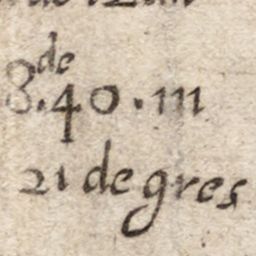 8.de 40.m
21 degres